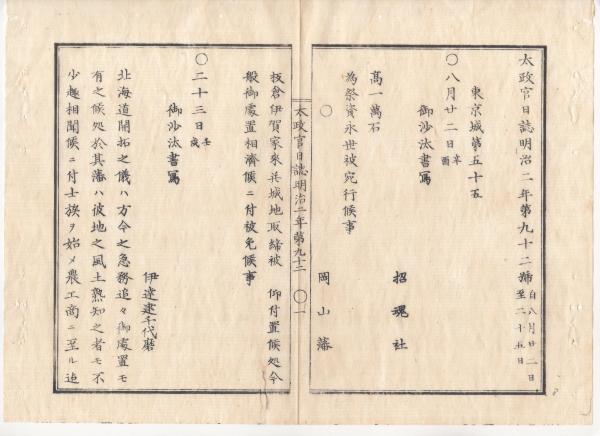 太政官日誌明治二年第九十二號 自八月廿二日至二十五日
東京城第五十五
〇八月廿二日辛酉
御沙汰書寫
招魂社
高一萬石
為祭資永世被宛行候事
〇
岡山藩
板倉伊賀家來共城地取締被 仰付置候処今
般御處置相濟候ニ付被免候事
太政官日誌明治二年第九十二 〇一
〇二十三日壬戌
御沙汰書寫
伊達邍千代麿
北海道開拓之儀ハ方今之急務追々御處置モ
有之候処於其藩ハ彼地之風土熟知之者モ不
少趣相聞候ニ付士族ヲ始メ農工商ニ至ル迠